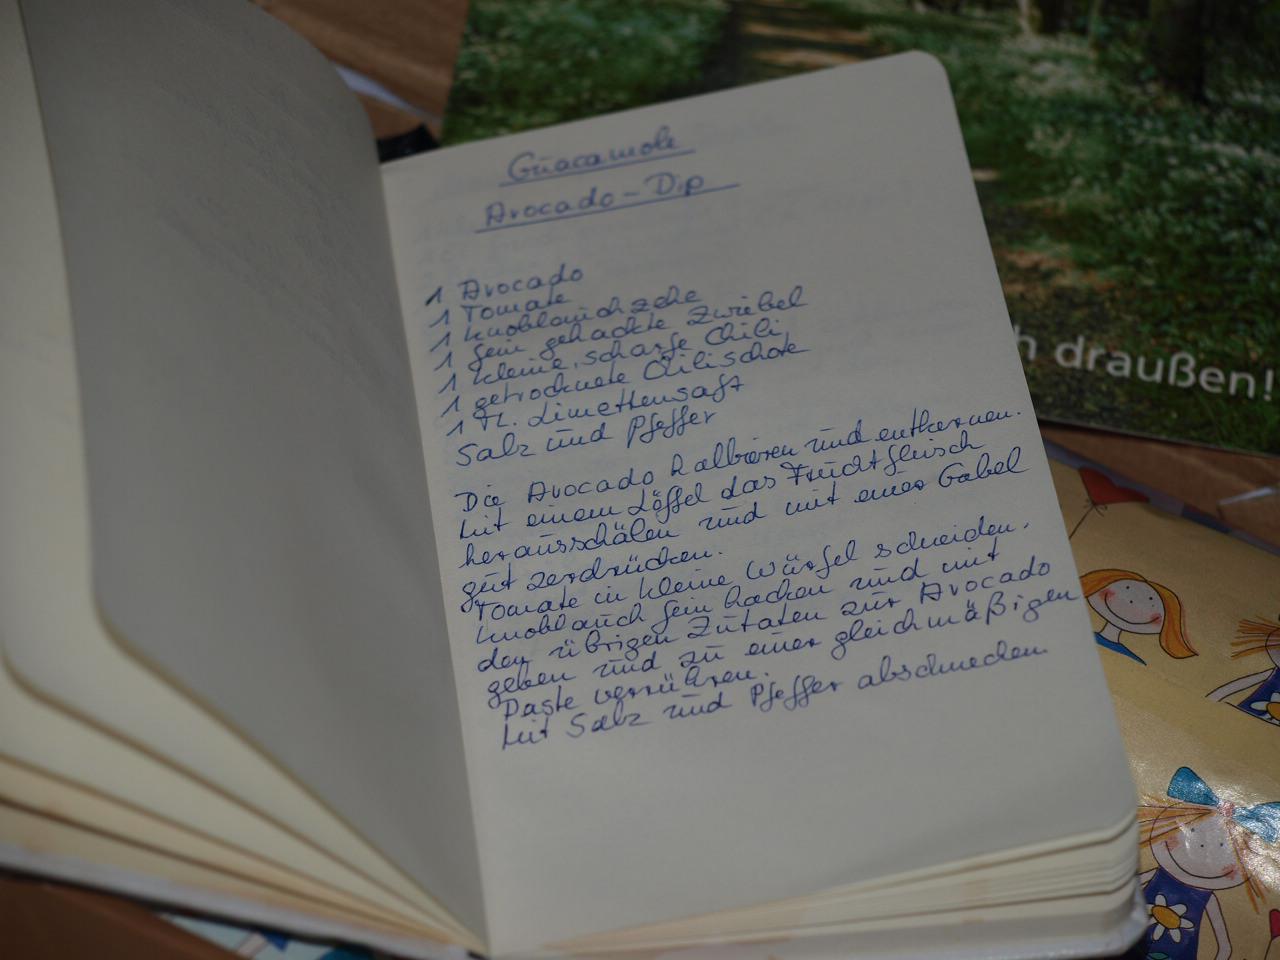 Guacamole
Avocado-Dip
1 Avocado
1 Tomate
1 Knoblauchzehe
1 fein gehackte Zwiebel
1 kleine, scharfe Chili
1 getrocknete Chilischote
1 TL. Limettensaft
Salz und Pfeffer
Die Avocado halbieren und entkernen.
Mit einem Löffel das Fruchtfleisch
herausschälen und mit einer Gabel
gut zerdrücken.
Tomate in kleine Würfel schneiden.
Knoblauch fein hacken und mit
den übrigen Zutaten zur Avocado
geben und zu einer gleichmäßigen
Paste verrühren.
Mit Salz und Pfeffer abschmecken
h draußen!